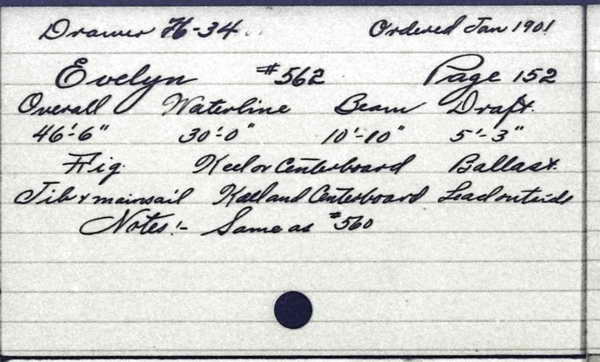 Drawer H-34 Ordered Jan 1901
Evelyn #562 Page 152
Overall Waterline Beam Draft.
46'-6" 30'-0" 10'-10" 5'-3"
Rig. Keel or Centerboard Ballast.
Jib & mainsail Keel and Centerboard Lead outside
Notes:- Same as #560